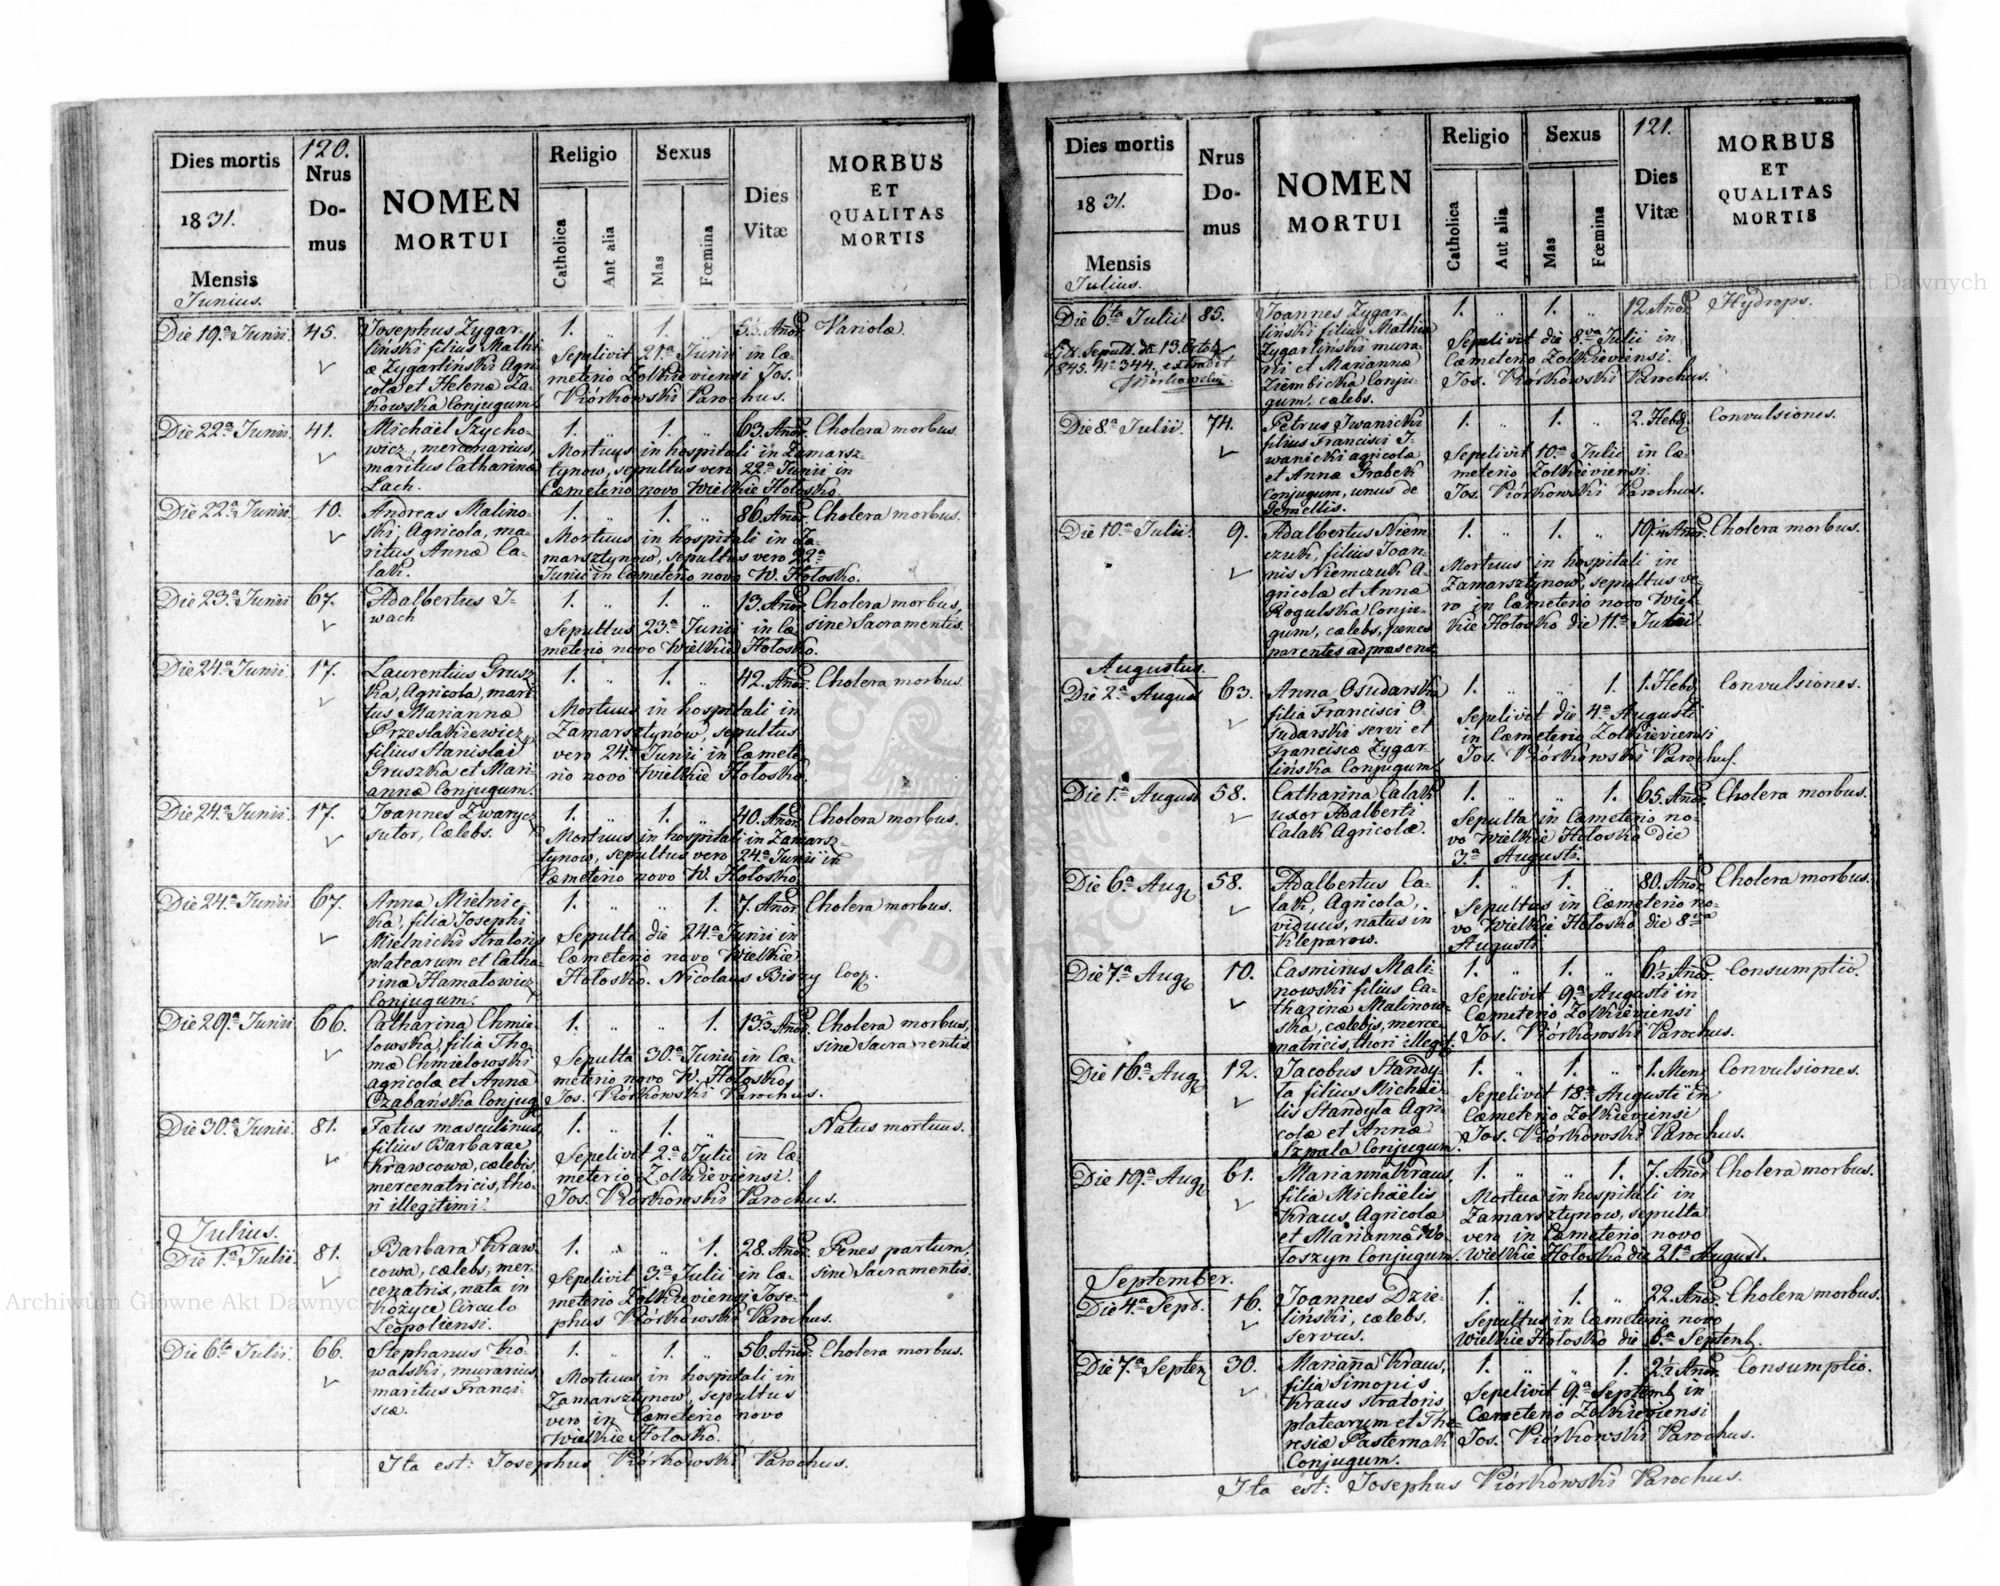 120.
Dies mortis
1831.
Mensis
Junius.
Nrus
Do-
mus
NOMEN
MORTUI
Religio
Catholica
Ant alia
Sexus
Mas
Fœmina
Dies
Vitæ
MORBUS
ET
QUALITAS
MORTIS
Die 19.a Junii
45.
Josephus Zygar-
liński filius Mathi
æ Zygarliński Agri
colæ et Helenæ Za-
kowska Conjugum.
1. „ 1. „
Sepelivit 21.a Junii in Cæ-
meterio Zolkieviensi Jos.
Piórkowski Parochus.
Añor.
Variolæ.
Die 22.a Junii.
41.
Michaël Szycho-
wicz, mercenarius,
maritus Catharinæ
Lach.
1. „ 1. „
Mortuus in hospitali in Zamarsz-
tynow, sepultus vero 22.a Junii in
Cæmeterio novo Wielkie Hołosko.
63. Añor.
Cholera morbus
Die 22.a Junii
10.
Andreas Malino-
ski, Agricola, ma-
ritus Annæ Ca-
lak.
1. „ 1. „
Mortuus in hospitali in Za-
marsztynow, sepultus vero 22.a
Junii in Cæmeterio novo W. Hołosko.
86. Añor.
Cholera morbus.
Die 23.a Junii
67.
Adalbertus I-
wach
1. „ 1. „
Sepultus 23.a Junii in Cæ-
meterio novo Wielkie Hołosko.
13. Añor.
Cholera morbus,
sine Sacramentis.
Die 24.a Junii
17.
Laurentius Grusz-
ka, Agricola, mari
tus Mariannæ
Przeslakiewicz,
filius Stanislai
Gruszka et Mari-
annæ Conjugum.
1. „ 1. „
Mortuus in hospitali in
Zamarsztynów, sepultus
vero 24.a Junii in Cæmete-
rio novo Wielkie Hołosko.
42. Añor.
Cholera morbus.
Die 24.a Junii.
17.
Joannes Zwarycz
sutor, Cælebs.
1. „ 1. „
Mortuus in hospitali in Zamarsz-
tynow, sepultus vero 24.a Junii in
Cæmeterio novo W. Hołosko
40. Añor.
Cholera morbus.
Die 24.a Junii
67.
Anna Mielnic-
ka, filia Josephi
Mielnicki stratoris
platearum et Catha-
rinæ Hamatowicz
Conjugum.
1. „ „ 1.
Sepulta die 24.a Junii in
Cæmeterio novo Wielkie
Hołosko. Nicolaus Biszy Coop.
7. Añor.
Cholera morbus.
Die 29.a Junii
66.
Catharina Chmie-
lowska, filia Tho-
mæ Chmielowski
agricolæ et Annæ
Czabańska Conjug.
1. „ „ 1.
Sepulta 30.a Junii in Cæ-
meterio novo W. Hołosko,
Jos. Piórkowski Parochus.
Añor.
Cholera morbus,
sine Sacramentis
Die 30.a Junii.
81.
Fœtus masculinus,
filius Barbaræ
Krawcowa, cælebis,
mercenatricis, tho-
ri illegitimi.
1. „ 1. „
Sepelivit 2.a Julii in Cæ-
meterio Zolkieviensi.
Jos. Piórkowski Parochus.
Natus mortuus.
Julius.
Die 1.a Julii.
81.
Barbara Kraw-
cowa, cælebs, mer-
cenatrix, nata in
Kożyce Circulo
Leopoliensi.
1. „ „ 1.
Sepelivit 3.a Julii in Cæ-
meterio Zolkieviensi Jose-
phus Piórkowski Parochus.
28. Añor.
Penes partum,
sine Sacramentis.
Die 6ta Julii.
66.
Stephanus Ko-
walski, murarius,
maritus Franci-
scæ.
1. „ 1. „
Mortuus in hospitali in
Zamarsztynow, sepultus
vero in Cæmeterio novo
Wielkie Hołosko.
56. Añor.
Cholera morbus.
Ita est: Josephus Piórkowski Parochus.
121.
Dies mortis
1831.
Mensis
Julius.
Nrus
Do-
mus
NOMEN
MORTUI
Religio
Catholica
Aut alia
Sexus
Mas
Fœmina
Dies
Vitæ
MORBUS
ET
QUALITAS
MORTIS
Die 6ta Julii
85.
13. Octob.
1845. N° 344. extradit
Joannes Zygar-
liński filius Mathiæ
Zygarliński mura-
rii et Mariannæ
Ziembicka Conju-
gum, cælebs.
1. „ 1. „
Sepelivit die 8va Julii in
Cæmeterio Zolkieviensi.
Jos. Piórkowski Parochus.
12. Añor.
Hydrops.
Die 8.a Julii.
74.
Petrus Iwanicki
filius Francisci I-
wanicki agricolæ
et Annæ Grabek
Conjugum, unus de
Gemellis.
1. „ 1. „
Sepelivit 10.a Julii in Cæ-
meterio Zolkieviensi.
Jos. Piórkowski Parochus.
2. Hebd.
Convulsiones.
Die 10.a Julii.
9.
Adalbertus Niem-
czuk, filius Joan-
nis Niemczuk A-
gricolæ et Annæ
Rogulska Conju-
gum, cælebs, penes
parentes ad præsens.
1. „ 1. „
Mortuus in hospitali in
Zamarsztynow, sepultus ve-
ro in Cæmeterio novo Wiel-
kie Hołosko die 11.a Julii
19½ Añor.
Cholera morbus.
Augustus.
Die 2.a August
63.
Anna Osudarska
filia Francisci O-
sudarski servi et
Franciscæ Zygar-
lińska Conjugum.
1. „ „ 1.
Sepelivit die 4.a Augusti
in Cæmeterio Zolkieviensi
Jos. Piórkowski Parochus.
1. Hebd.
Convulsiones.
Die 1.a August
58.
Catharina Calak
uxor Adalberti
Calak Agricolæ.
1. „ „ 1.
Sepulta in Cæmeterio no-
vo Wielkie Hołosko die
3.a Augusti.
65. Añor.
Cholera morbus.
Die 6.a Aug.
58.
Adalbertus Ca-
lak, Agricola,
viduus, natus in
Kleparow.
1. „ 1. „
Sepultus in Cæmeterio no-
vo Wielkie Hołosko die 8va
Augusti
80. Añor.
Cholera morbus.
Die 7.a Aug.
10.
Casmirus Mali-
nowski filius Ca-
tharinæ Malinow-
ska, cælebis, merce-
natricis, thori illegit.
1. „ 1. „
Sepelivit 9.a Augusti in
Cæmeterio Zolkieviensi
Jos. Piórkowski Parochus.
6½ Añor.
Consumptio.
Die 16.a Aug.
12.
Jacobus Standy-
ła filius Michaë-
lis Standyła Agri-
colæ et Annæ
Szpala Conjugum.
1. „ 1. „
Sepelivit 18.a Augusti in
Cæmeterio Zolkieviensi
Jos. Piórkowski Parochus.
1. Men.
Convulsiones.
Die 19.a Aug.
61.
Marianna Kraus,
filia Michaëlis
Kraus Agricolæ
et Mariannæ Wo-
łoszyn Conjugum.
1. „ „ 1.
Mortua in hospitali in
Zamarsztynow, sepulta
vero in Cæmeterio novo
Wielkie Hołosko die 21.a August.
7. Añor.
Cholera morbus.
September.
Die 4.a Sept.
16.
Joannes Dzie-
liński, cælebs,
servus.
1. „ 1. „
Sepultus in Cæmeterio novo
Wielkie Hołosko die 6.a Septemb.
22. Añor.
Cholera morbus.
Die 7.a Septem
30.
Mariañna Kraus,
filia Simonis
Kraus stratoris
platearum et The-
resiæ Pasternak
Conjugum.
1. „ „ 1.
Sepelivit 9.a Septemb. in
Cæmeterio Zolkieviensi
Jos. Piórkowski Parochus.
2½ Añor.
Consumptio.
Ita est: Josephus Piórkowski Parochus.
Archiwum Główne Akt Dawnych
Archiwum Główne Akt Dawnych
ARCHIWUM GŁÓWNE AKT DAWNYCH